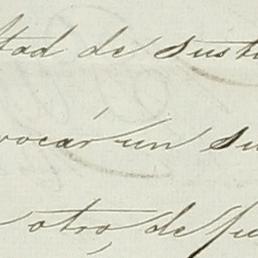 ltad de susti
vocar un su
otro, de fu